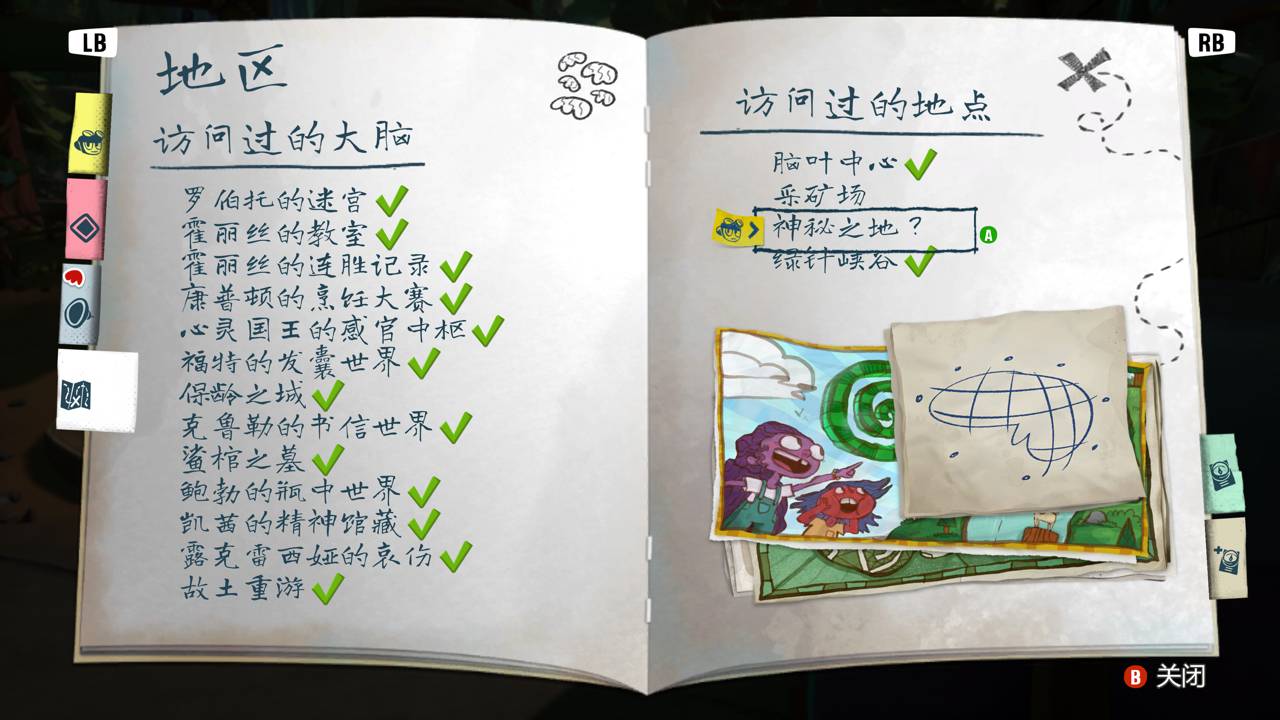 LB
RB
地区
访问过的大脑
罗伯托的迷宫
霍丽丝的教室
霍丽丝的连胜记录
康普顿的烹饪大赛
心灵国王的感官中枢
福特的发囊世界
保龄之城
克鲁勒的书信世界
鲨棺之墓
鲍勃的瓶中世界
凯茜的精神馆藏
露克雷西娅的哀伤
故土重游
访问过的地点
脑叶中心
采矿场
神秘之地？
A
绿针峡谷
B 关闭